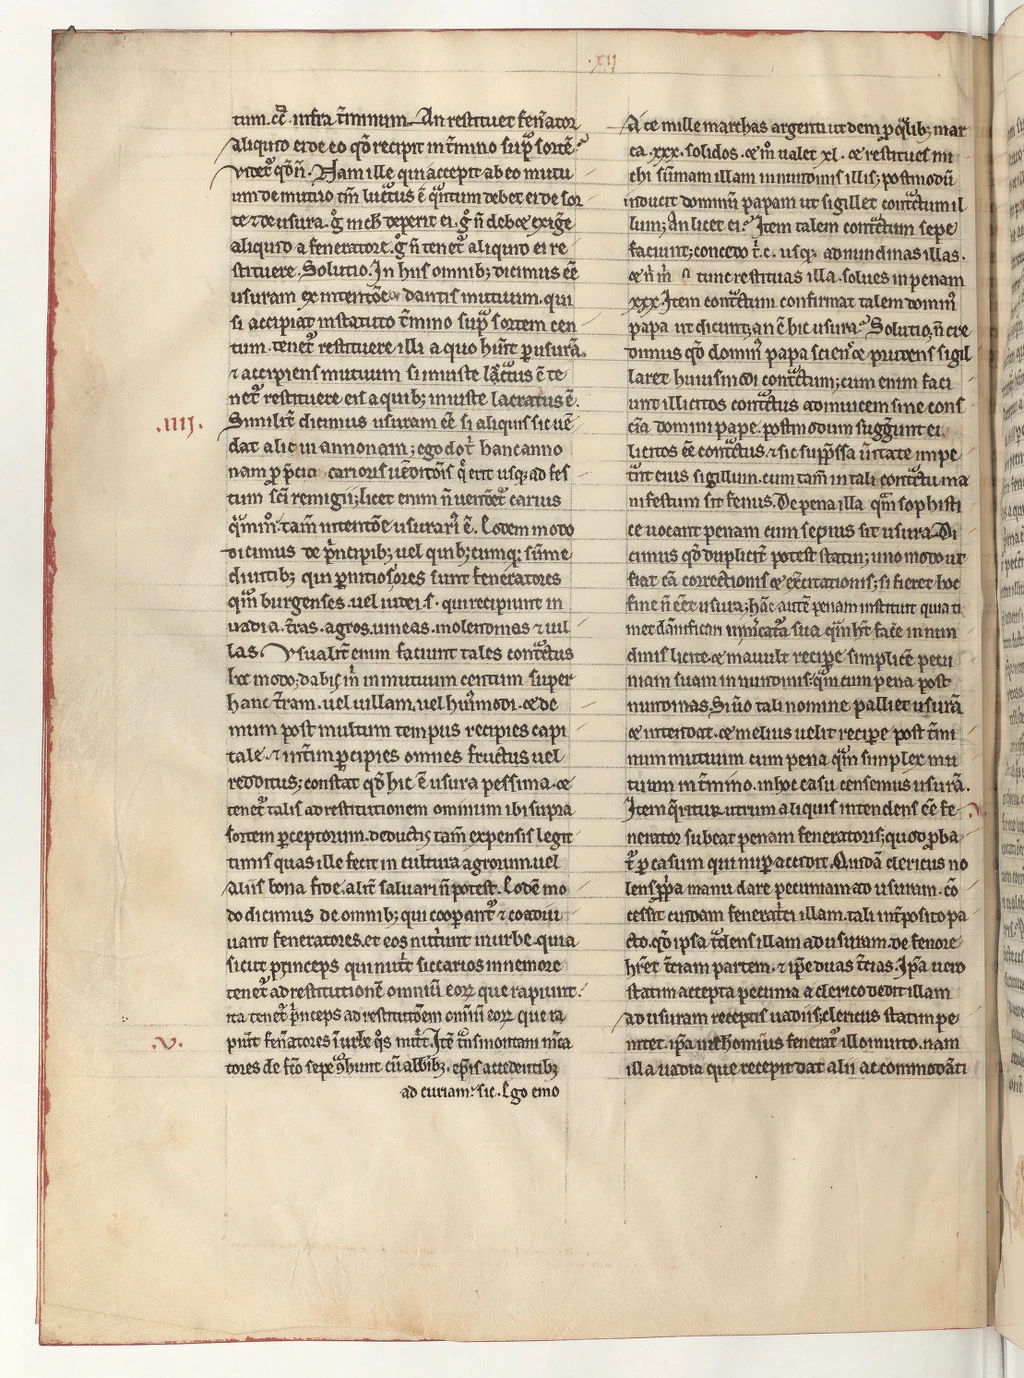 .xij.
tum. et̄. infra t̄minum. An restituet fen̄ator
aliquid ei de eo qd̄ recipit in t̄mino sup̄ sortē?
videt᷑ qd̄ n̄. Nam ille qui accepit ab eo mutu
um de mutuo tm̄ luc̄tus ē qͣntum debet ei de sor
te ⁊ de usura. gͦ nich̄ deperit ei. gͦ n̄ debet exiḡe
aliquid a feneratore. gͦ n̄ tenet᷑ aliquid ei re
stituere. Solutio. In hiis omnib; dicimus eē
usuram ex intentōe dantis mutuum. qui
si accipiat instituto t̄mino sup̄ sortem cen
tum. tenet᷑ restituere illi a quo hūit p̱ usurā.
⁊ accipiens mutuum si iniuste lucͣtus ē te
net᷑ restituere eis a quib; iniuste lucratus ē.
.iiij. Similit̄ dicimus usuram eē si aliquis sic uē
dat alic̄ in annonam; ego do t᷑ hanc anno
nam p̱ p̄cio carioris uēditōis qͥ erit usq; ad fes
tum sc̄i remigii; licet enim n̄ uendet᷑ carius
qͣm m̊. tam̄ intentōe usurari᷑ ē. Eodem modo
dicimus de pͥncipib; uel quib;cumq; sūme
diuitib; qui p̱nitiosiores sunt feneratores
qͣm burgenses. uel iudei .s. qui recipiunt in
uadia. t̄ras. agros. uineas. molendinas ⁊ uil
las. Vsualit̄ enim faciunt tales contͣctus
hoc modo; dabis m̄ in mutuum centum super
hanc t̄ram. uel uillam. uel hui᷒modi. et de
mum post multum tempus recipies capi
tale. ⁊ int̄im p̱cipies omnes fructus uel
redditus; constat qd̄ hic ē usura pessima. et
tenet᷑ talis ad restitutionem omnium ibi supra
sortem p̱ceptorum. deductis tam̄ expensis legit
timis quas ille fecit in cultura agrorum. uel
aliis bona fide. alit̄ saluari n̄ potest. Eodē mo
do dicimus de omnib; qui coop̱ant᷑ ⁊ coadiu
uant feneratores. et eos nut̄unt in urbe. quia
sicut pͥnceps qui nut̄t siccarios in nemore
tenet᷑ ad restitutionē omniū eoꝝ que rapiunt.
ita tenet᷑ pͥnceps ad restitutōem omīū eoꝝ que ra
piūt fen̄atores ī urbe qͦs nut̄t. Itē
.v. tores de fc̄o sepe ꝯhunt cū abbīb;. ep̄is accedentib;
ad curiam: sic. Ego emo
A te mille marchas argenti ut dem p̱ qͣlib; mar
ca .xxx. solidos. et m̊ ualet xl. et restitues mi
chi sūmam illam in nundinis illis; postmodū
inducit dominū papam ut sigillet contͣctum il
lum; An licet ei? Item talem contͣctum sepe
faciunt; concedo t᷑ .c. usq; ad nundinas illas.
et nͥ m̄ tunc restituas illa. solues in penam
xxx. Item contͣctum confirmat talem domin᷒
papa ut dicunt; an ē hic usura? Solutio; n̄ cre
dimus qd̄ domin᷒ papa sciēs et prudens sigil
laret huiusmodi contͣctum; cum enim faci
unt illicitos contͣctus adinuicem sine cons
cīa domini pape. postmodum sugg̱unt ei.
licitos eē contͣctus. ⁊ sic supp̄ssa u̅itate impe
tͣnt eius sigillum. cum tam̄ in tali contͣctu ma
nifestum sit fenus. De pena illa qͣm sophisti
ce uocant penam cum sepius sit usura. Di
cimus qd̄ duplicit̄ potest statui; uno modo ut
fiat cā correctionis et ex̄citationis; si fieret hoc
fine n̄ eēt usura; hāc autē penam instituit quia ti
met dāpnificari sua qͣm hr̄t fac̄e in nun
dinis licite. et mauult recip̱e simplicē pecu
niam suam in nundinis. qͣm cum pena post
nundinas. Si ůo tali nomine palliet usurā
et intendat. et melius uelit recip̱e post t̄mi
num mutuum cum pena qͣm simplex mu
tuum in t̄mino. in hoc casu censemus usurā.
Item qͥritur utrum aliquis intendens eē fe
nerator subeat penam feneratoris; quod p̱ba
t᷑ p̱ casum qui nup̱ accidit. Quidā clericus no
lens pͥpa manu dare pecuniam ad usuram. cō
cessit cuidam fenerat̊i illam. tali int̄posito pa
cto. qd̄ ipsa t̄dens illam ad usuram. de fenore
hr̄et t̄ciam partem. ⁊ ip̄e duas t̄cias. Ip̄a uero
statim accepta pecunia a clerico dedit illam
ad usuram receptis uadiis; clericus statim pe
nitet. ip̄a feneratͥ illo inuito. nam
illa uadia que recepit dat alii ac commodāti